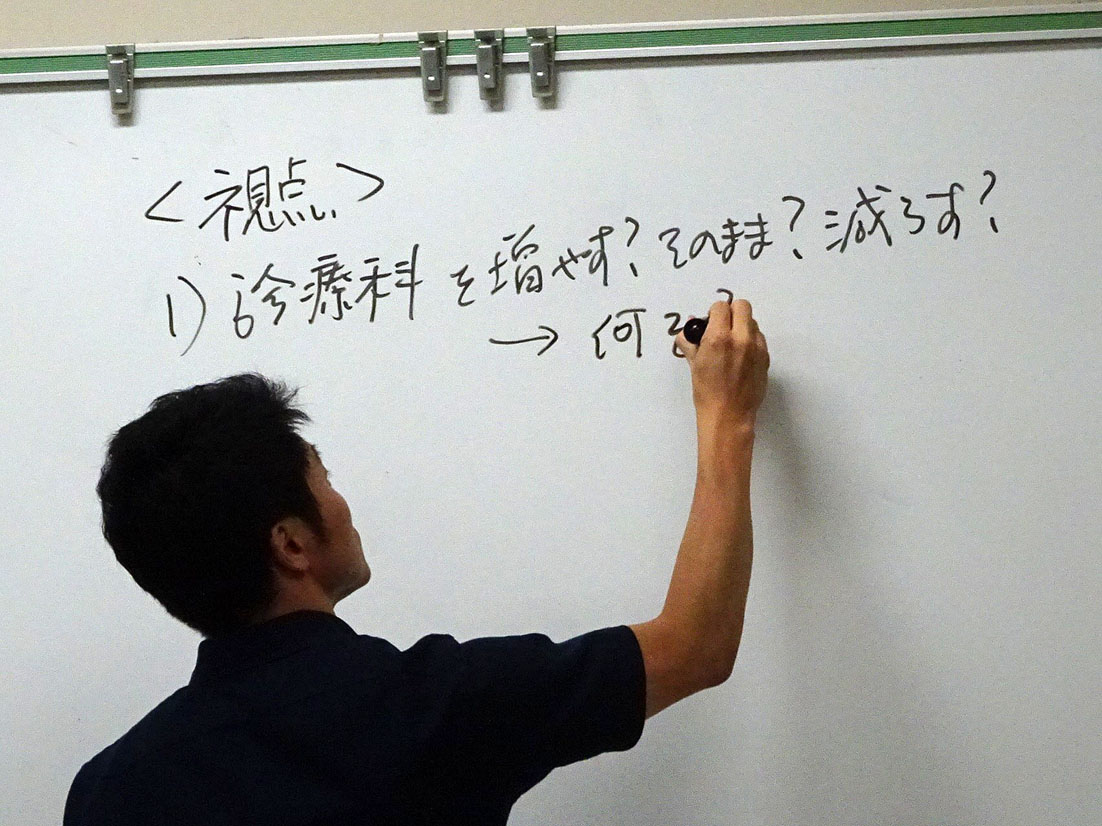 <視点>
1) 診療科を増やす?そのまま?減らす?
→ 何を?